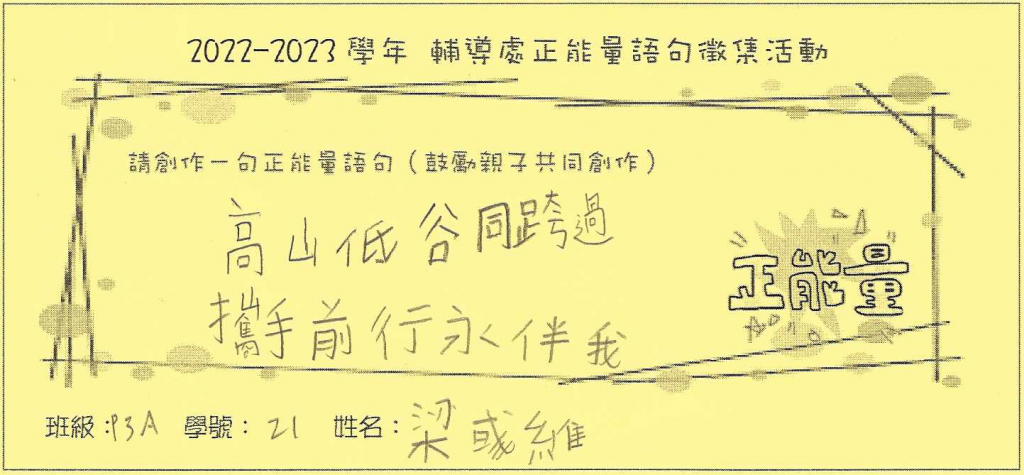 2022-2023學年 輔導處正能量語句徵集活動
請創作一句正能量語句（鼓勵親子共同創作）
高山低谷同跨過
攜手前行永伴我
正能量
班級：P3A 學號：21 姓名：梁或維